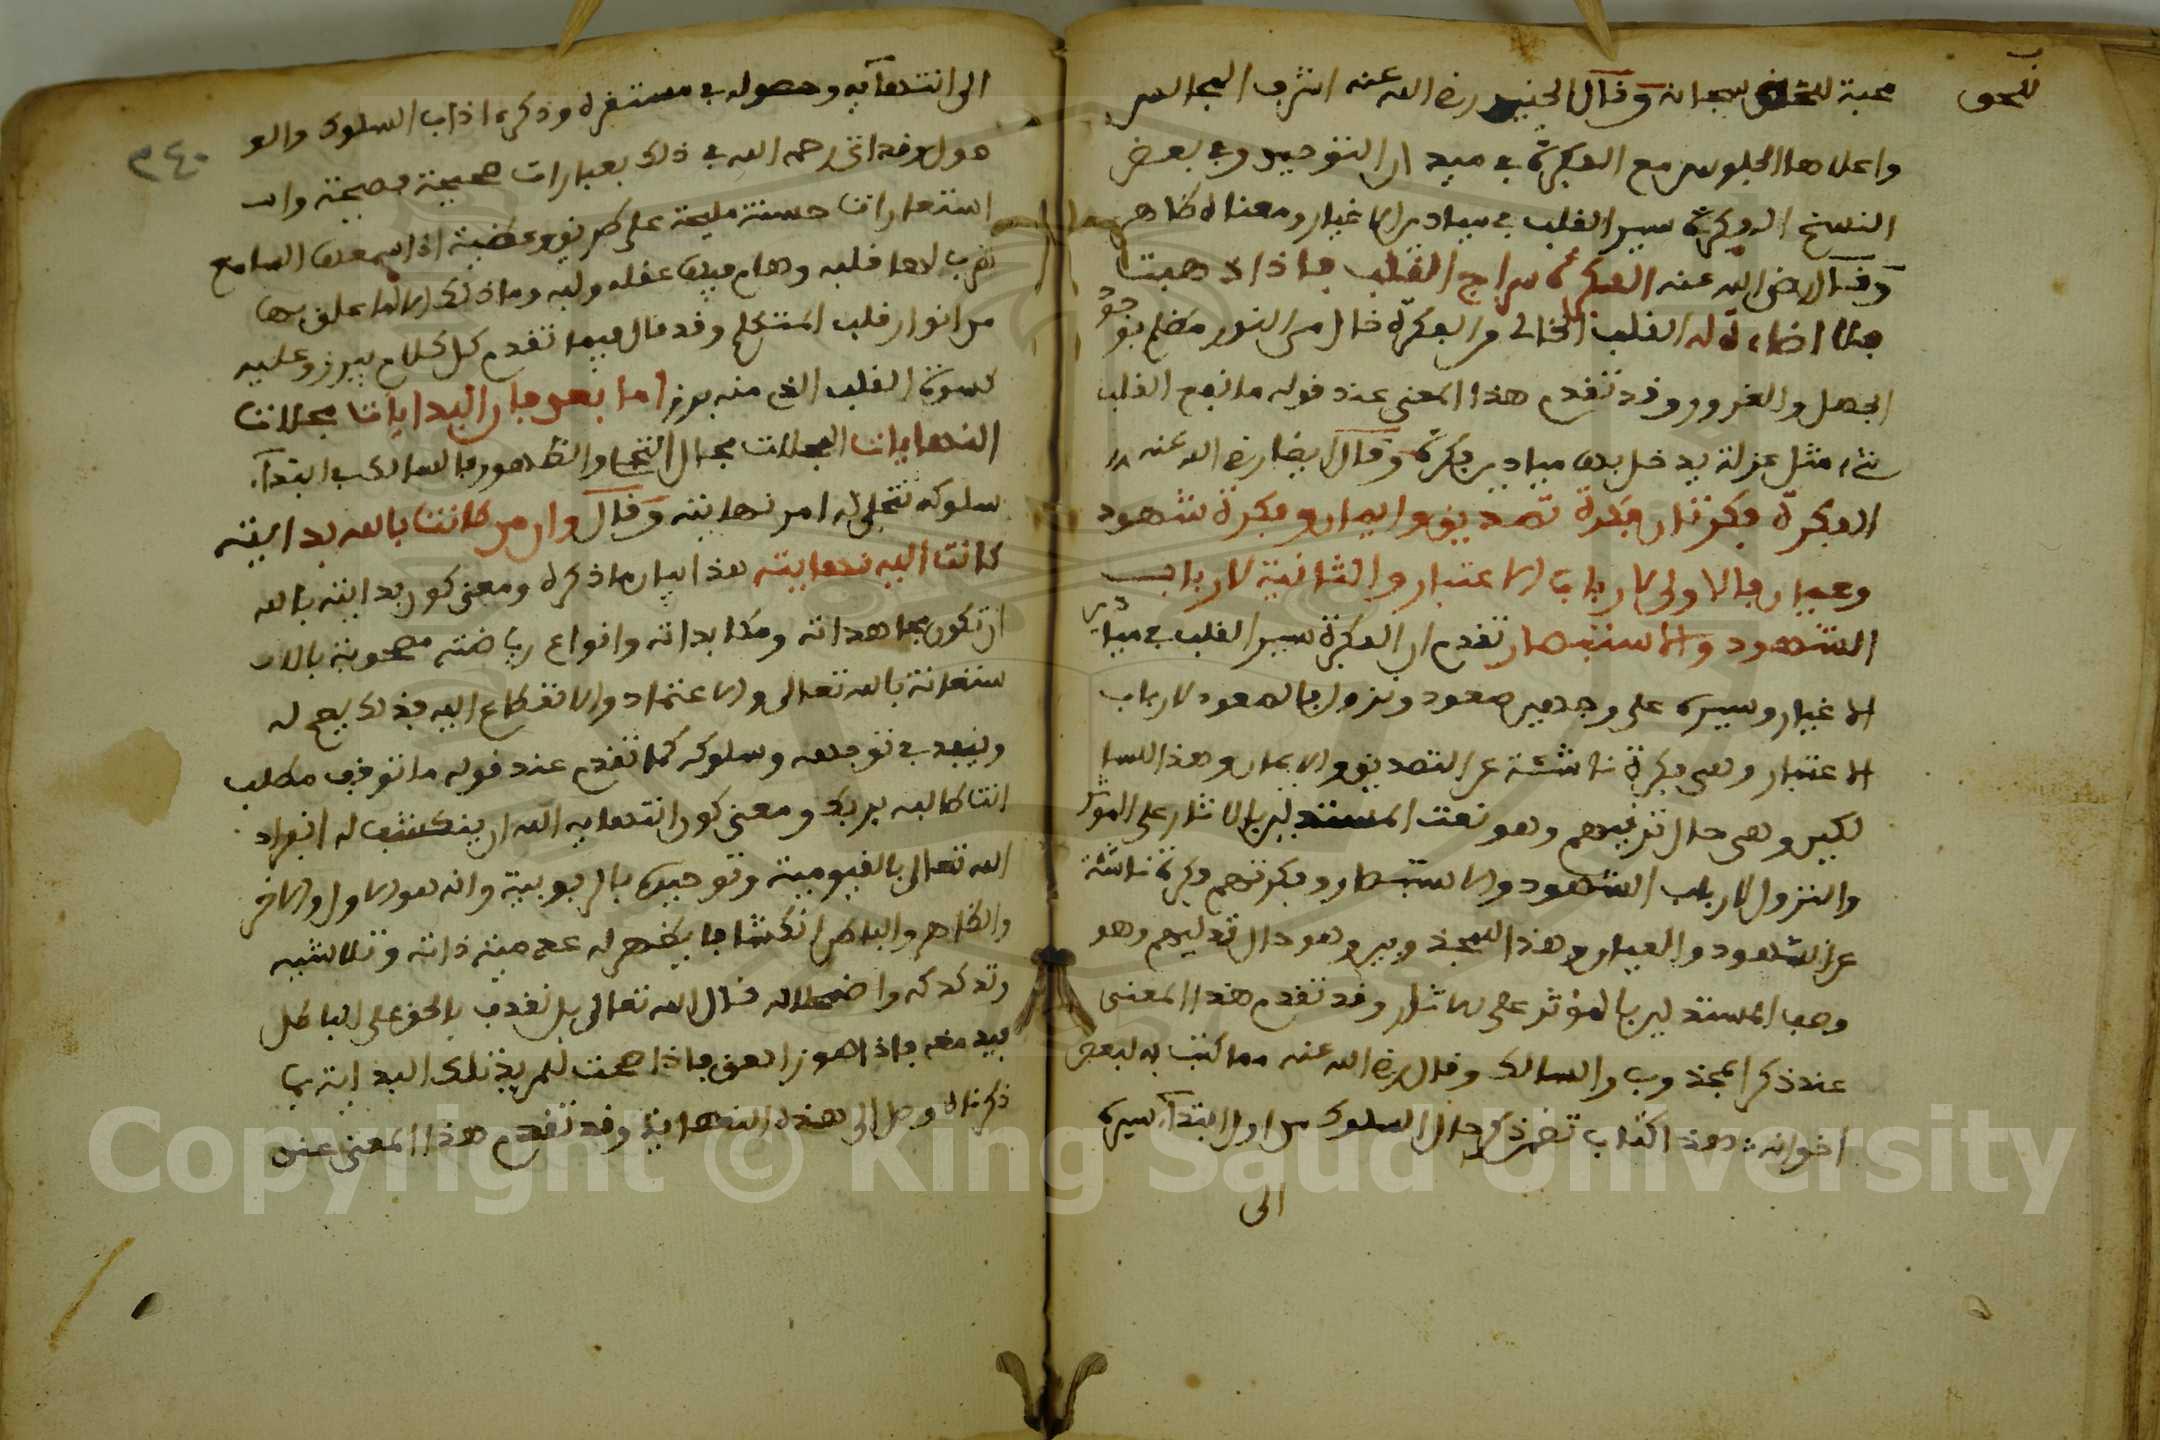 للحق
محبة للخلق سبحانه وقال الجنيد رضي الله عنه اشرف المجالس
واعلاها الجلوس مع الفكرة في ميدان التوحيد وفي بعض
النسخ الفكرة سير القلب في ميادين الاغيار ومعناه ظاهر
وقال رضي الله عنه الفكرة سراج القلب فاذا ذهبت
فلا اضاءة له القلب الخالي من الفكرة خال من النور مظلم بوجود
الجهل والغرور وقد تقدم هذا المعنى عند قوله ما نفع القلب
شيء مثل عزلة يدخل بها ميادين فكرة وقال ايضا رضي الله عنه
الفكرة فكرتان فكرة تصديق وايمان وفكرة شهود
وعيان فالاولى لارباب الاعتبار والثانية لارباب
الشهود والاستبصار تقدم ان الفكرة سير القلب في ميادين
الاغيار وسيره على وجهين صعود ونزول فالصعود لارباب
الاعتبار وهي فكرة ناشئة عن التصديق والايمان وهذا للسا
لكين وهي حال ترقيهم وهو نعت المستدلين بالاثار على الموثر
والنزول لارباب الشهود والاستبصار وفكرتهم فكرة ناشئة
عن الشهود والعيان وهذا للمجذوبين وهو حال تدليهم وهو
وصف المستدلين بالمؤثر على الاثار وقد تقدم هذا المعنى
عند ذكر المجذوب والسالك وقال رضي الله عنه مما كتب به لبعض
اخوانه هذا كتاب تضمن ذكر حال السلوك من اول ابتداء سيره
الى
الى انتهائه وحصوله في مستقره وذكر اداب السلوك والو
٣٤٠
صول وقد اتى رحمه الله في ذلك بعبارات صحيحة فصيحة وا
استعارات حسنة مليحة على طريق وعظية اذا سمعها السامع
تقرب لها قلبه وهام فيها عقله ولبه وما ذلك الا لما علق بها
من انوار قلب المتكلم وقد قال فيما تقدم كل كلام يبرز وعليه
كسوة القلب الذي منه برز اما بعد فان البدايات مجلات
النهايات المجلات مجال التجلي والظهور فالسالك في ابتداء
سلوكه تتجلى له امر نهايته وقال وان من كانت بالله بدايته
كانت اليه نهايته هذا بيان ما ذكره ومعنى كون بدايته بالله
ان تكون مجاهداته ومكابداته وانواع رياضته مصحوبة بالا
ستعانة بالله تعالى والاعتماد والانقطاع اليه فذلك يصح له
وينفد في توجهه وسلوكه كما تقدم عند قوله ما توقف مطلب
انت طالبه بربك ومعنى كون انتهائه الى الله ان ينكشف له انفراد
الله تعالى بالقيومية وتوحيده بالربوبية وانه هو الاول والاخر
والظاهر والباطن انكشافا يظهر له عدمية ذاته وتلاشيه
وتدكدكه واضمحلاله قال الله تعالى بل نقذف بالحق على الباطل
فيدمغه فاذا هو زاهق فاذا صحت للمريد تلك البداية بما
ذكرناه وصل الى هذه النهاية وقد تقدم هذا المعنى عند
Copyright © King Saud University